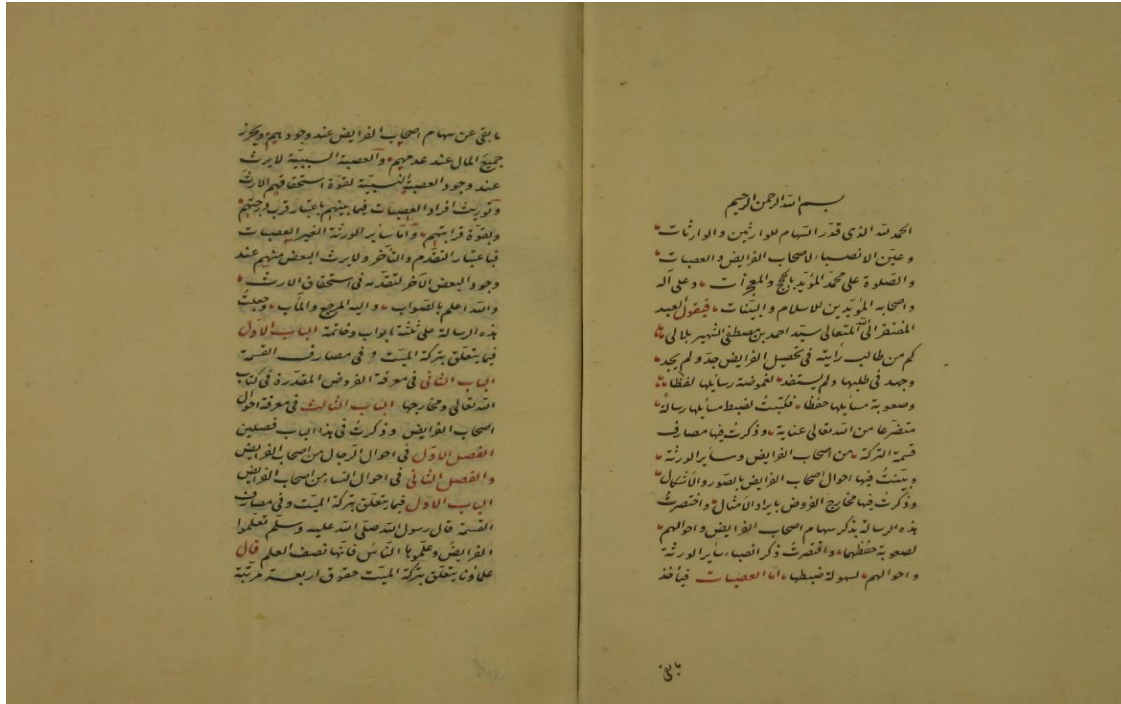 بسم الله الرحمن الرحيم
الحمد لله الذى قدّر السّهام للوارثين والوارثات
وعيّن الانصباء لاصحاب الفرايض والعصبات
والصلوة على محمّد المؤيّد بالحجج والمعجزات وعلى آله
واصحابه المؤيّدين للاسلام والبيّنات فيقول العبد
المفتقر الى الله المتعالى سيّد احمد بن مصطفى الشهير بلالى
كم من طالب رأيته فى تحصيل الفرايض جدّ ولم يجد
وجهد فى طلبها ولم يستفد لغموضة رسايلها لفظا
وصعوبة مسايلها حفظا فكتبتُ لضبط مسايلها رسالة
متضرّعا من الله تعالى عناية وذكرتُ فيها مصارف
قسمة التركة من اصحاب الفرايض وساير الورثة
وبيّنتُ فيها احوال اصحاب الفرايض بالصّور والاَشكال
وذكرتُ فيها مخارج الفروض بايراد الاَمثال واختصرتُ
هذه الرسالة بذكر سهام اصحاب الفرايض واحوالهم
لصعوبة حفظها واقتصرتُ ذكر انصباء ساير الورثة
واحوالهم لسهولة ضبطها امّا العصبات فيأخذ
ما بقى
ما بقى عن سهام اصحاب الفرايض عند وجودهم ويحرز
جميع المال عند عدمهم والعصبة السببيّة لا يرث
عند وجود العصبة النسبيّة لقوّة استحقاقهم الارث
وتوريث افراد العصبات فيما بينهم باعتبار قرب درجتهم
وبقوّة قرابتهم وامّا ساير الورثة الغير العصبات
فباعتبار التقدّم والتأخّر ولا يرث البعض منهم عند
وجود البعض الآخر لتقدّمه فى استحقاق الارث
والله اعلم بالصّواب واليه المرجع والمآب وجعلتُ
هذه الرسالة على ثلثة ابواب وخاتمة الباب الاوّل
فيما يتعلّق بتركة الميّت وفى مصارف القسمة
الباب الثانى فى معرفة الفروض المقدّرة فى كتاب
الله تعالى ومخارجها الباب الثالث فى معرفة احوال
اصحاب الفرايض وذكرتُ فى هذا الباب فصلين
الفصل الاوّل فى احوال الرجال من اصحاب الفرايض
والفصل الثانى فى احوال النساء من اصحاب الفرايض
الباب الاوّل فيما يتعلّق بتركة الميّت وفى مصارف
القسمة قال رسول الله صلّى الله عليه وسلّم تعلّموا
الفرايض وعلّموها النّاس فانّها نصف العلم قال
علماؤنا يتعلّق بتركة الميّت حقوق اربعة مرتّبة